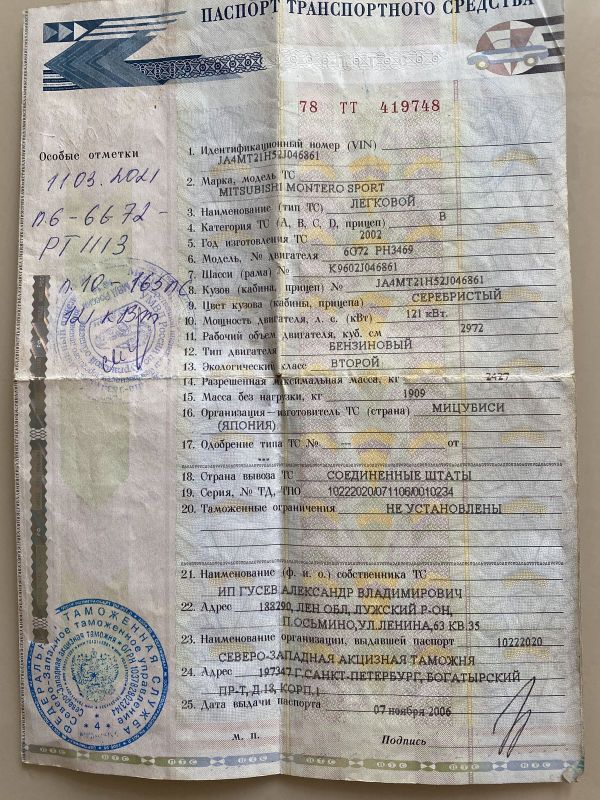 ПАСПОРТ ТРАНСПОРТНОГО СРЕДСТВА
78 ТТ 419748
Особые отметки
11 03. 2021
п.6 - 6G 72 -
РТ 1113
п. 10 - 165 лс
121 кВт
1. Идентификационный номер (VIN)
JA4MT21H52J046861
2. Марка, модель ТС
MITSUBISHI MONTERO SPORT
3. Наименование (тип ТС) ЛЕГКОВОЙ
4. Категория ТС (A, B, C, D, прицеп) B
5. Год изготовления ТС 2002
6. Модель, № двигателя 6G72 PH3469
7. Шасси (рама) № K9602J046861
8. Кузов (кабина, прицеп) № JA4MT21H52J046861
9. Цвет кузова (кабины, прицепа) СЕРЕБРИСТЫЙ
10. Мощность двигателя, л. с. (кВт) 121 кВт.
11. Рабочий объем двигателя, куб. см 2972
12. Тип двигателя БЕНЗИНОВЫЙ
13. Экологический класс ВТОРОЙ
14. Разрешенная максимальная масса, кг 2427
15. Масса без нагрузки, кг 1909
16. Организация-изготовитель ТС (страна) МИЦУБИСИ
(ЯПОНИЯ)
17. Одобрение типа ТС № --- от
---
18. Страна вывоза ТС СОЕДИНЕННЫЕ ШТАТЫ
19. Серия, № ТД, ТПО 10222020/071106/0010234
20. Таможенные ограничения НЕ УСТАНОВЛЕНЫ
21. Наименование (ф. и. о.) собственника ТС
ИП ГУСЕВ АЛЕКСАНДР ВЛАДИМИРОВИЧ
22. Адрес 188290, ЛЕН ОБЛ, ЛУЖСКИЙ Р-ОН,
П.ОСЬМИНО,УЛ.ЛЕНИНА,63 КВ.35
23. Наименование организации, выдавшей паспорт 10222020
СЕВЕРО-ЗАПАДНАЯ АКЦИЗНАЯ ТАМОЖНЯ
24. Адрес 197347 Г.САНКТ-ПЕТЕРБУРГ, БОГАТЫРСКИЙ
ПР-Т, Д.18, КОРП.1
25. Дата выдачи паспорта 07 ноября 2006
м. п. Подпись
ФЕДЕРАЛЬНАЯ ТАМОЖЕННАЯ СЛУЖБА
Северо-Западное таможенное управление
* 4 *